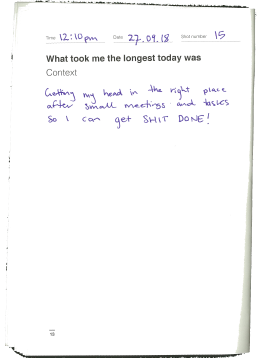 Time 12:10pm Date 27.09.18 Shot number 15
What took me the longest today was
Context
Getting my head in the right place
after small meetings and tasks
so I can get SHIT DONE!